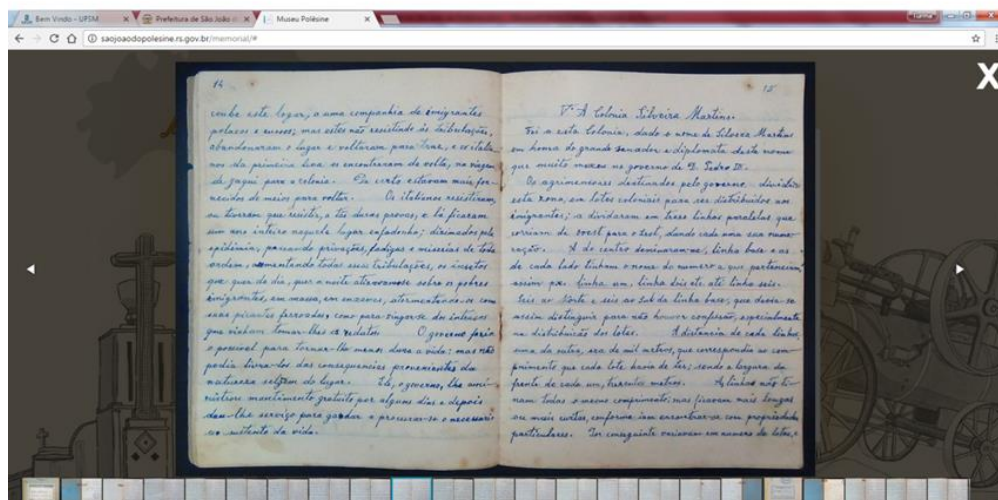 Bem Vindo - UFSM
Prefeitura de São João d
Museu Polêsine
saojoaodopolesine.rs.gov.br/memorial/#
X
14
coube este logar, a uma companhia de emigrantes
polacos e russos; mas estes não resistindo ás tribulações,
abandonaram o lugar e voltaram para traz, e os italia
nos da primeira leva os encontraram de volta, na viagem
de para a colonia. De certo estavam mais for-
necidos de meios para voltar. Os italianos resistiram,
ou tiveram que resistir, a tão duras provas, e lá ficaram
um ano inteiro naquele logar enfadonho; dizimados pela
epidemia, passando privações, fadigas e miserias de toda
ordem, aumentando todas suas tribulações, os insetos
que quer de dia, quer a noite sobre os pobres
emigrantes, em massa, em enxames, atormentando-os com
suas picantes ferroadas, como para vingar-se dos intrusos
que vinham tomar-lhes os redutos. O governo fazia
o possivel para tornar-lhe menos dura a vida; mas não
podia livra-los das consequencias provenientes da
natureza do lugar. Ele, o governo, lhe
mantimento gratuito por alguns dias e depois
dava-lhe serviço para ganhar e procurar-se o necessari
o sustento da vida.
15
Vº A Colonia Silveira Martins.
Foi a esta Colonia, dado o nome de Martins
em honra do grande senador e diplomata deste nome
que muito no governo de D. Pedro II.
Os agrimensores destinados pelo governo
esta zona, em lotes coloniais para ser distribuidos aos
emigrantes; a dividiram em treze linhas paralelas que
corriam de para o dando cada uma sua nume-
ração. A do centro linha base e as
de cada lado tinham o nome do numero a que pertenciam
assim linha um, linha dois etc até linha seis.
Seis ao Norte e seis ao Sul da linha base, que devia-se
assim distinguir para não haver confusão, especialmente
na distribuição dos lotes. A distancia de cada linha
uma da outra, era de mil metros, que correspondia ao com-
primento que cada lote havia de ter; sendo a largura da
frente de cada um, metros. As linhas não ti-
nam todas o mesmo comprimento; mas ficavam mais longas
ou mais curtas, conforme iam encontrar-se com propriedades
particulares. Por conseguinte variavam em numero de lotes, e